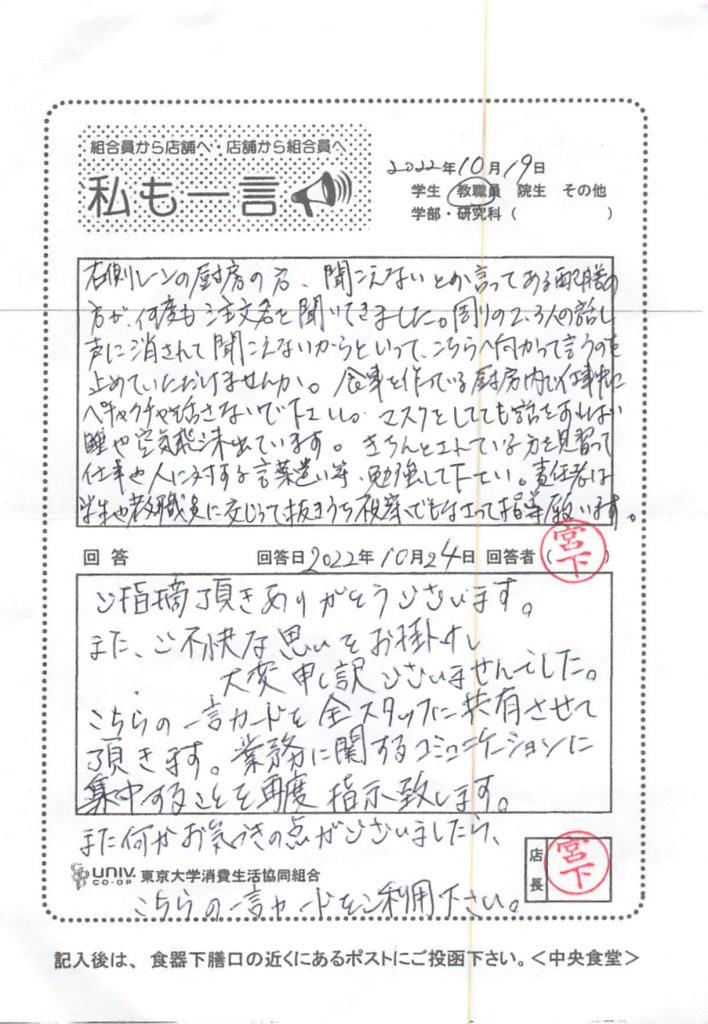 組合員から店舗へ・店舗から組合員へ
私も一言
2022年10月19日
学生 教職員 院生 その他
学部・研究科( )
右側レーンの厨房の方、聞こえないとか言ってある配膳の
方が、何度も注文名を聞いてきました。周りの2、3人の話し
声に消されて聞こえないからといって、こちらへ向かって言うのを
止めていただけませんか。食事を作っている厨房内で仕事中に
ペチャクチャ話さないで下さい。マスクをしてても話をすれば
唾や空気飛沫出ています。きちんとしている方を見習って
仕事や人に対する言葉遣い等、勉強して下さい。責任者は
学生や教職員に交じって抜きうち視察でもなさって指導願います。
回答 回答日2022年10月24日 回答者(宮下)
ご指摘頂きありがとうございます。
また、ご不快な思いをお掛けし
大変申し訳ございませんでした。
こちらの一言カードを全スタッフに共有させて
頂きます。業務に関するコミュニケーションに
集中することを再度指示致します。
また何かお気づきの点がございましたら、
店長 宮下
UNIV. CO-OP 東京大学消費生活協同組合
こちらの一言カードをご利用下さい。
記入後は、食器下膳口の近くにあるポストにご投函下さい。＜中央食堂＞